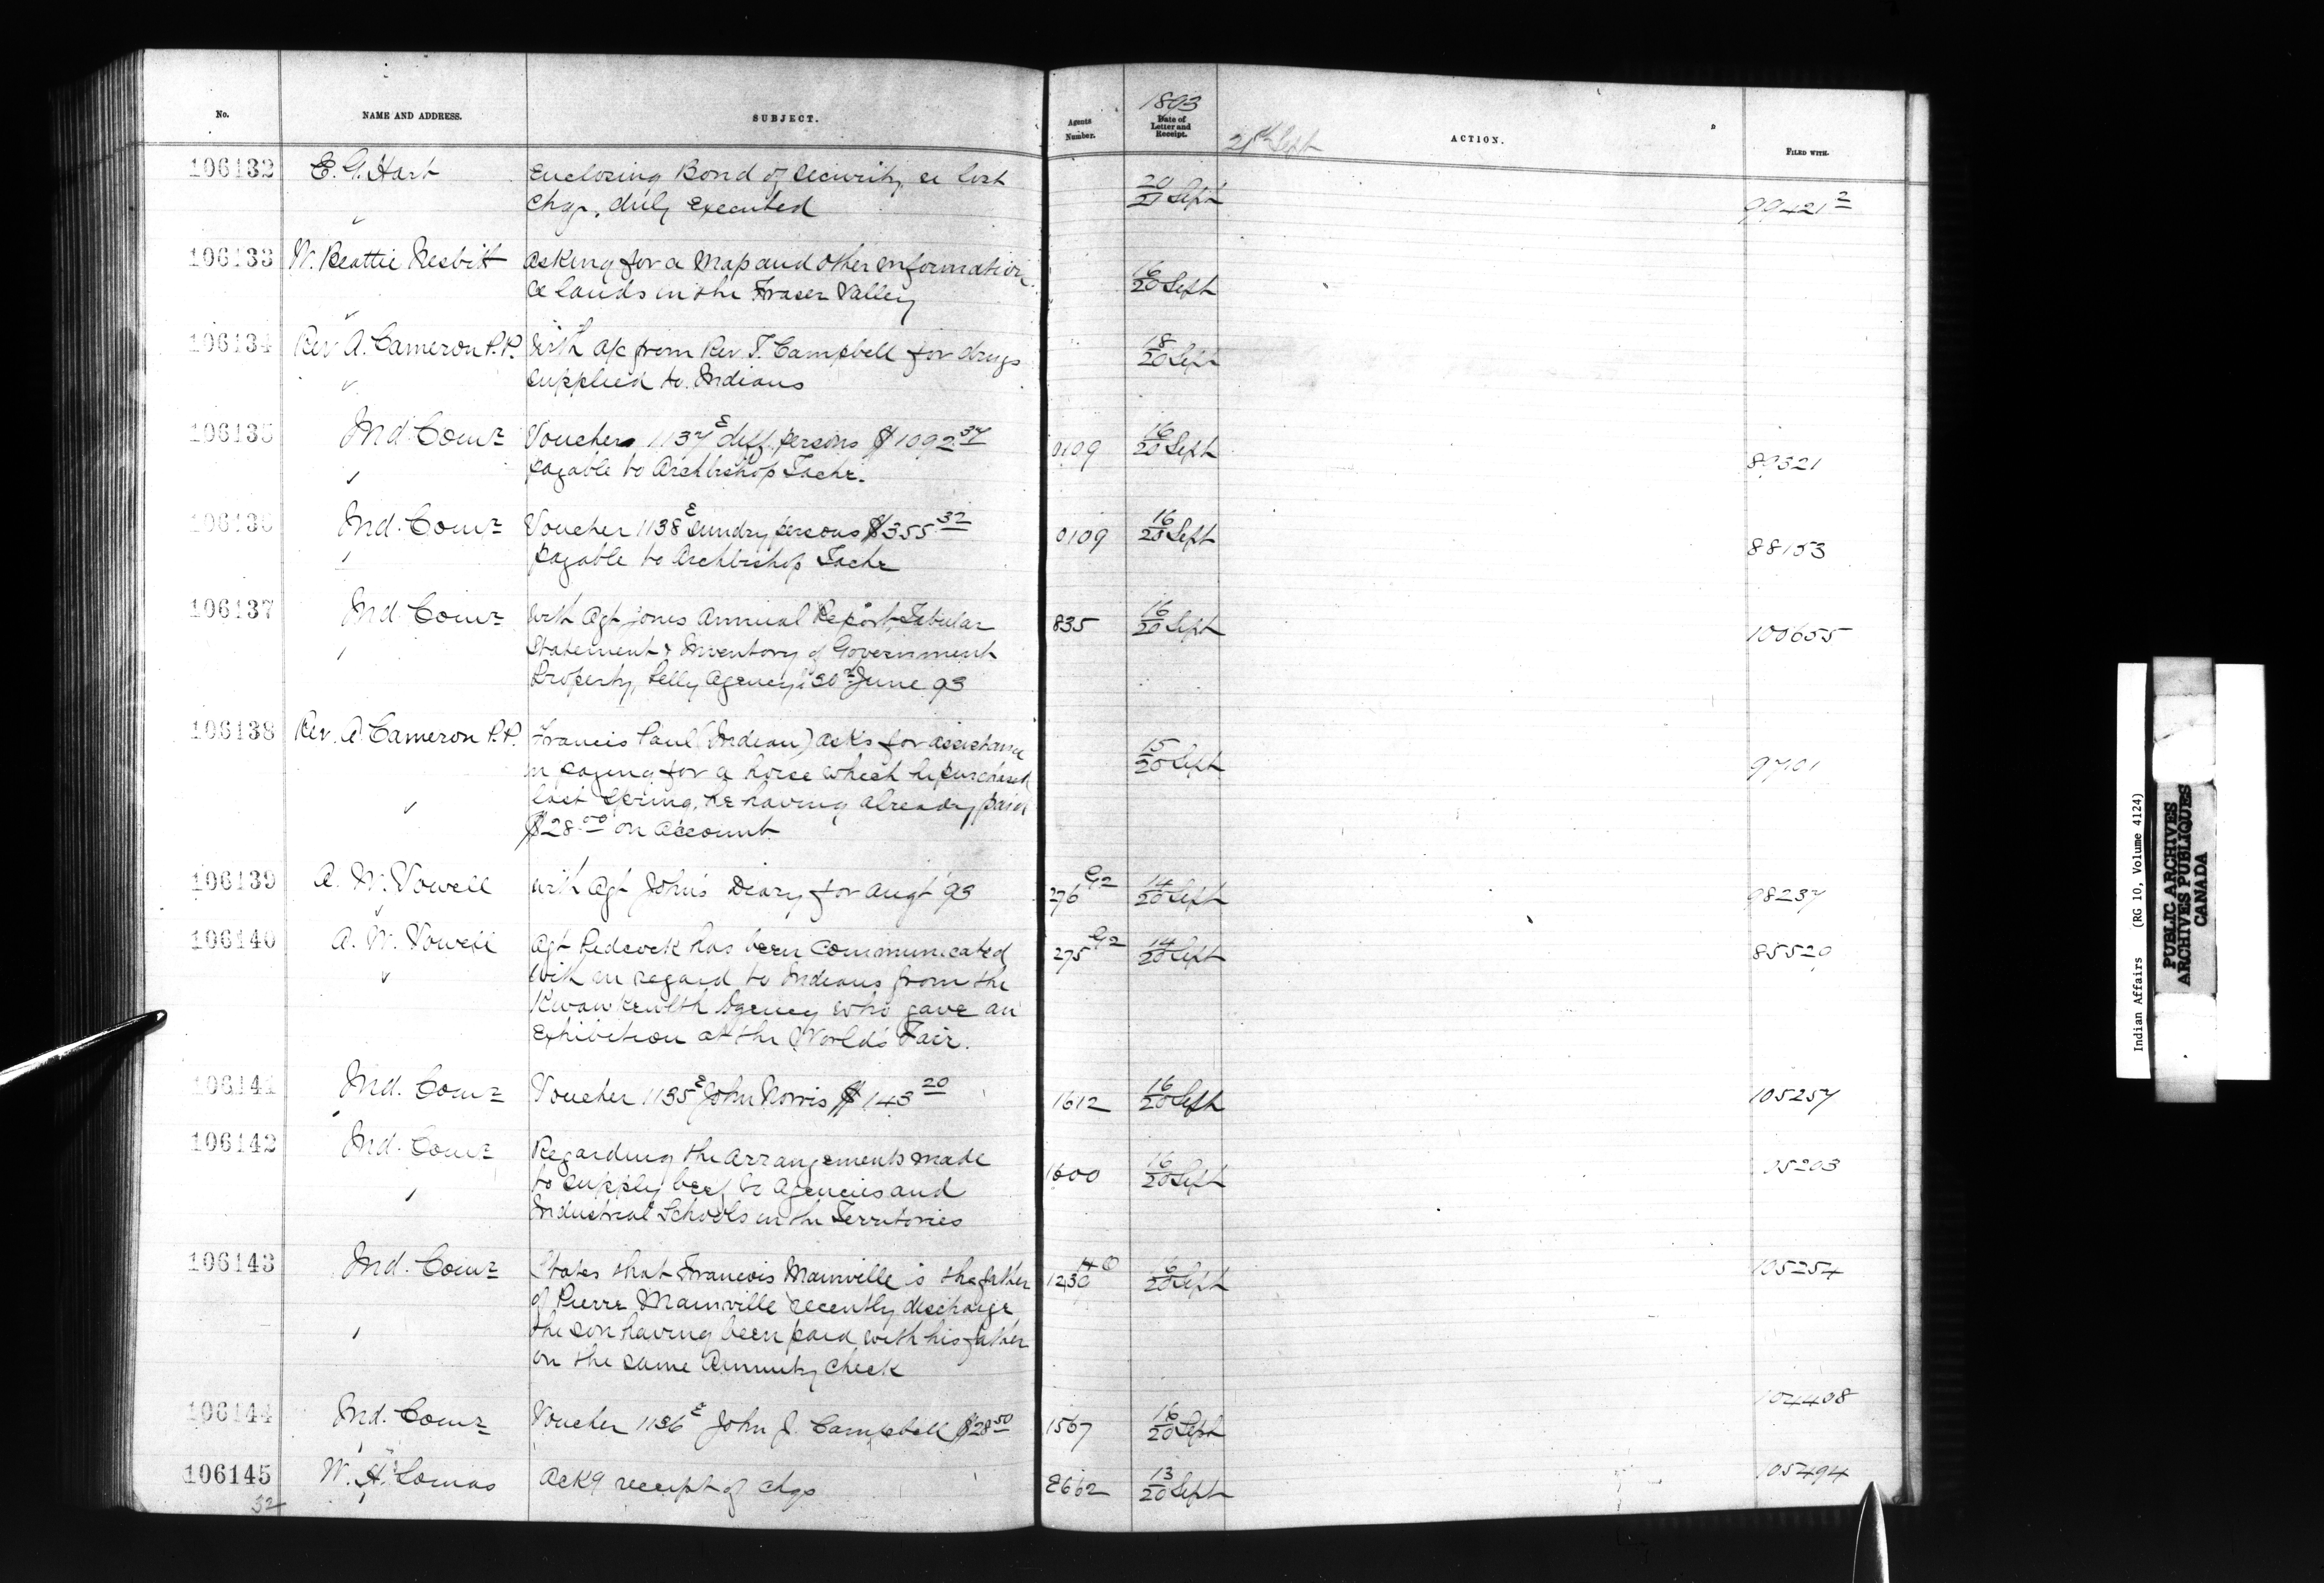 No. NAME AND ADDRESS. SUBJECT. Agents Number. 1893 Date of Letter and Receipt. 21st Sept ACTION. FILED WITH.
106132 E. G. Hart Enclosing Bond of Security re lost 20/21 Sept 99421 2
chqs, duly executed
106133 W. Beattie Nesbitt Asking for a Map and other information 16/20 Sept
re lands in the Fraser Valley
106134 Rev A. Cameron P.P. With a/c from Rev T. Campbell for drugs 18/20 Sept
supplied to Indians
106135 Ind. Comr Vouchers 1137E diff. persons $1092.37 0109 16/20 Sept 89321
payable to Archbishop Tache.
106136 Ind. Comr Voucher 1138E sundry persons $355 32 0109 16/20 Sept 88153
payable to Archbishop Tache
106137 Ind Comr With Agt Jones Annual Report, Tabular 835 16/20 Sept 100655
Statement & Inventory of Government
Property, Pelly Agency, 30th June 93
106138 Rev. A. Cameron P.P. Francis Paul (Indian) asks for assistance 15/20 Sept 97101
in paying for a horse which he purchased
last Spring, he having already paid
$28.00 on account
106139 A. W. Vowell With Agt John's Diary for Augt 93 276 G2 14/20 Sept 98237
106140 A. W. Vowell Agt Pidcock has been communicated 275 G2 14/20 Sept 85529
with in regard to Indians from the
Kwawkewlth Agency who gave an
Exhibition at the World's Fair.
106141 Ind. Comr Voucher 1135E John Norris $143 20 1612 16/20 Sept 105257
106142 Ind. Comr Regarding the arrangements made 1600 16/20 Sept 105203
to supply beef to Agencies and
Industrial Schools in the Territories
106143 Ind. Comr States that Francois Mainville is the father 1230 16/20 Sept 105254
of Pierre Mainville recently discharge
the son having been paid with his father
on the same Annuity check
106144 Ind. Comr Voucher 1136E John J. Campbell $28 50 1567 16/20 Sept 104408
106145 W. H. Lomas Ackg receipt of chqs 2662 13/20 Sept 105494
52
Indian Affairs (RG 10, Volume 4124)
PUBLIC ARCHIVES
ARCHIVES PUBLIQUES
CANADA